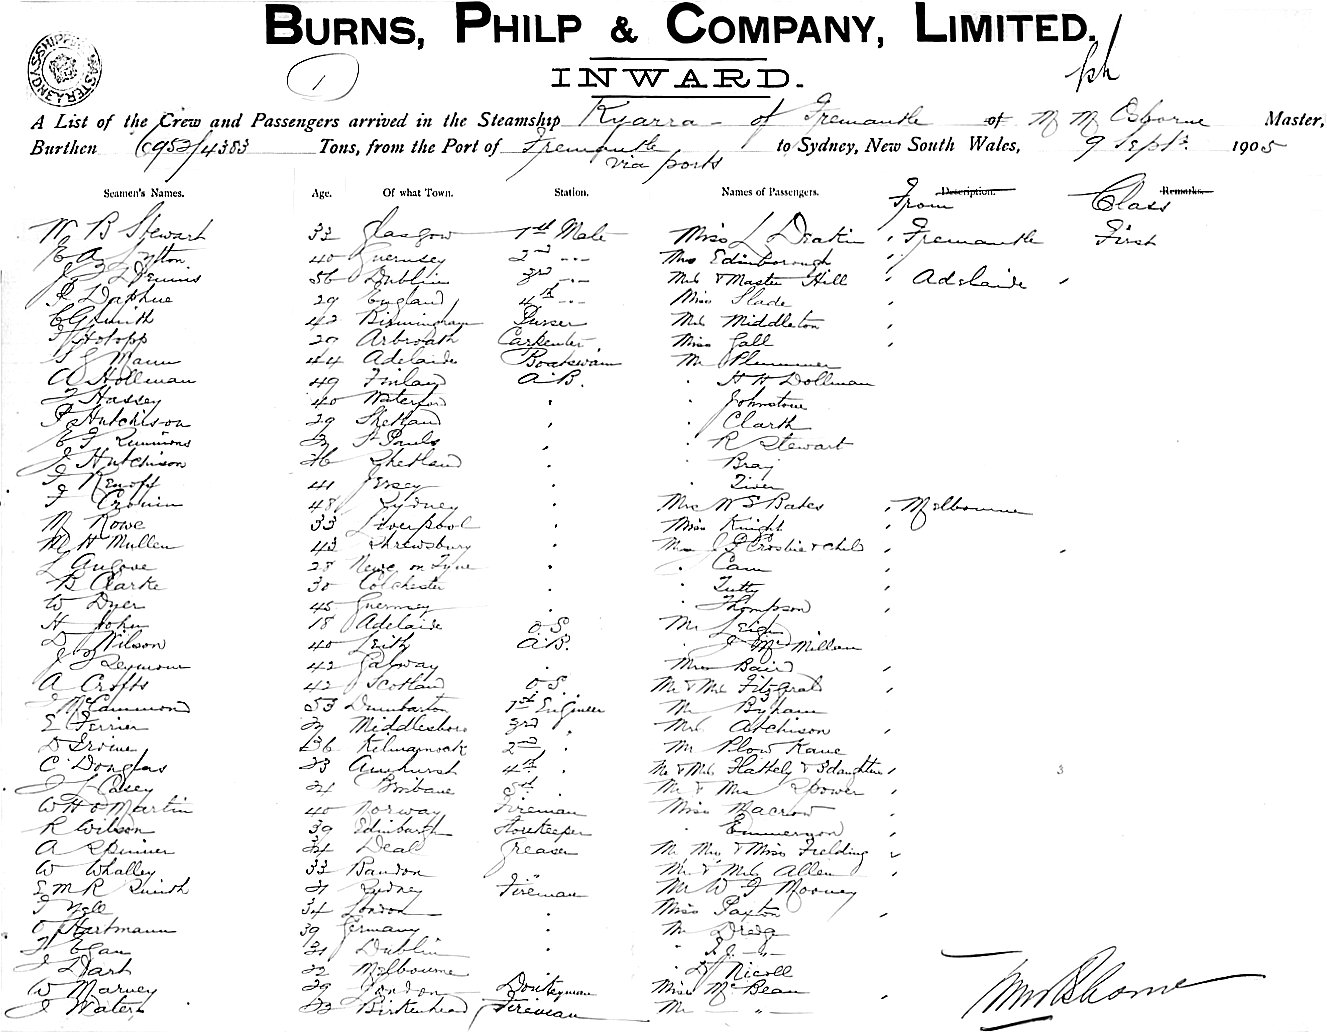 BURNS, PHILP & COMPANY, LIMITED.
SYDNEY SHIPPING MASTER
1
INWARD.
A List of the Crew and Passengers arrived in the Steamship Kyarra - of Fremantle of M M Osborne Master,
Burthen 6953/4383 Tons, from the Port of Fremantle via ports to Sydney, New South Wales, 9 Sept. 1905
Seamen's Names. Age. Of what Town. Station. Names of Passengers. From Description. Class Remarks.
W B Stewart 33 Glasgow 1st Mate Miss L Deakin Fremantle First
E A Lytton 40 Guernsey 2nd Mrs Edinborough
Dennis 56 Dublin 3rd Mrs & Master Hill Adelaide
Daphne 29 England 4th Miss Slade
C G Smith 42 Birmingham Purser Mrs Middleton
Holopp 29 Arbroath Carpenter Miss Gall
Mann 44 Adelaide Boatswain Mr Plummer
A Hollman 49 Finland A.B. H H Dollman
Hassey 40 Waterford Johnstone
Hutchison 29 Shetland Clark
Simmons St Pauls R Stewart
J Hutchison 26 Shetland Bray
Renoff 41 Jersey
Cronin 48 Sydney Mrs W S Bates Melbourne
M Rowe 33 Liverpool Miss Knight
M H Mullen 43 Shrewsbury J P Crosbie & child
L Angove 28 Newc on Tyne Cam
B Clarke 30 Colchester Tutty
W Dyer 45 Guernsey Thompson
H John 18 Adelaide O.S. Mr Leigh
D Wilson 40 Leith A.B. J McMillan
J Seymour 42 Galway Baird
A Crofts 42 Scotland O.S. Mr & Mrs Fitzgerald
McCammond 53 Dumbarton 1st Engineer Mr Byham
E Ferrier Middlesboro 3rd Mrs Atchison
D Irvine 36 Kilmarnock 2nd Mr Plow Kane
C Douglas 23 Amhurst 4th Mr & Mrs Hattely & 3 daughters 3
Casey 24 Brisbane 5th Mr & Mrs Spower
W H O Martin 40 Norway Fireman Miss Macrow
R Wilson 39 Edinburgh Storekeeper Emmerson
A Spinner 34 Deal Greaser Mr Mrs & Miss Fielding
W Whalley 33 Bandon " Mr & Mrs Allen
E M R Smith 31 Sydney Fireman Mr W J Mooney
34 London Miss Paxton
O Hartmann 39 Germany Mr Dredge
Egan 31 Dublin
J Dart 32 Melbourne D Nicoll
W Marvey 29 London Donkeyman Miss McBean
J Waters 23 Birkenhead Fireman Mr - " -